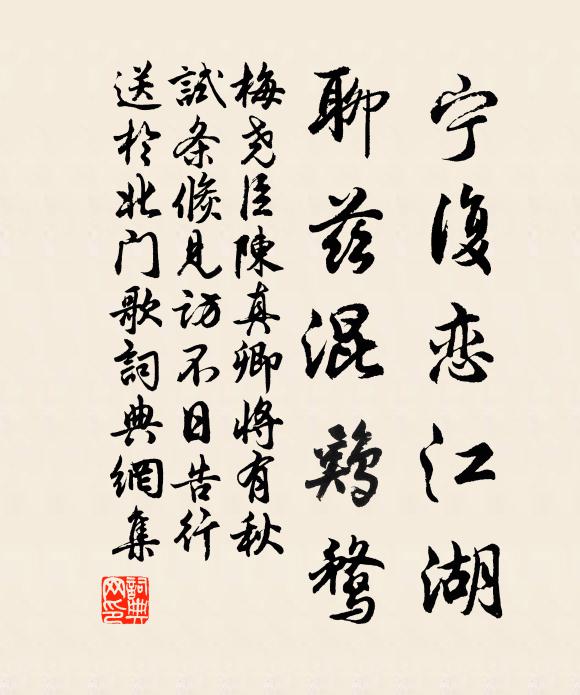 宁復恋江湖
聊兹混鶏鶩
梅尧臣陳真卿將有秋
試条倏見訪不日告行
送於北门歌詞典網集
詞典网印